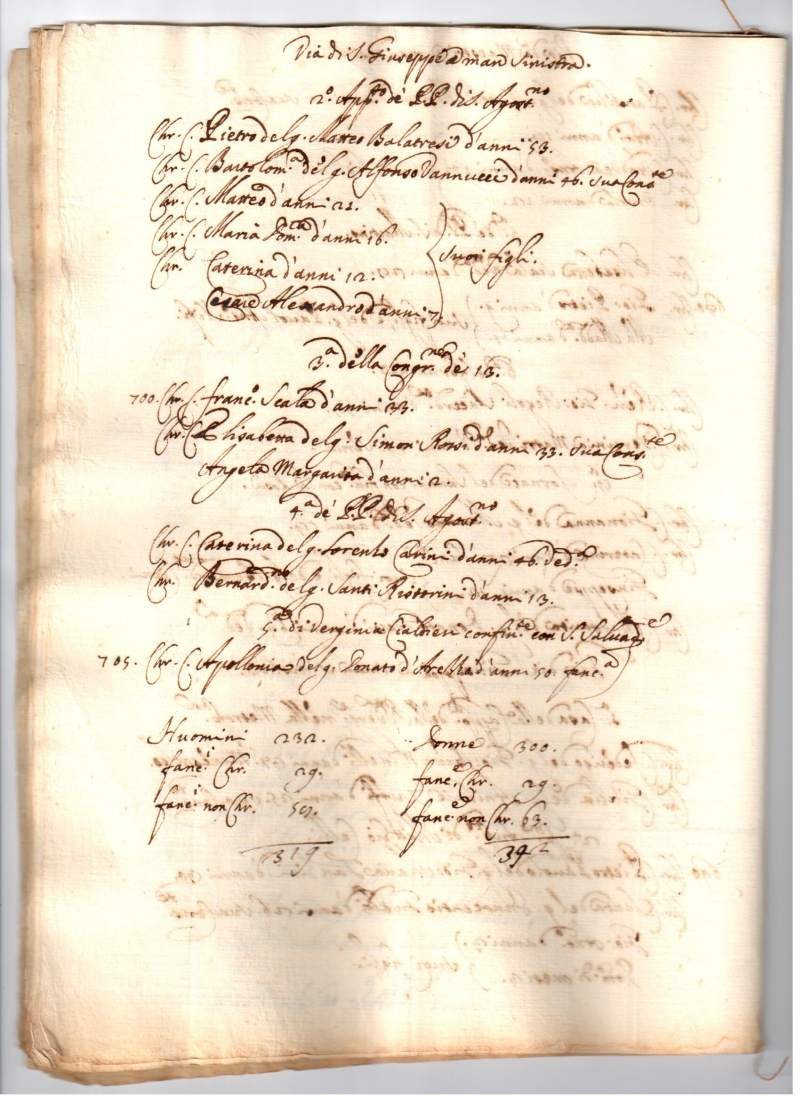 Via di S. Giuseppe a man sinistra.
2.º App.to de PP. di S. Agost.no
Chr. C. Pietro del q. Matteo Balatresi d'anni 53.
Chr. C. Bartolom.a del q. Alfonso Vannucci d'anni 46. sua Cons.te
Chr. C. Matteo d'anni 21.
Chr. C. Maria Dom.ca d'anni 16.
Chr. Caterina d'anni 12.
Cesare Alessandro d'anni 7
suoi figli.
3.a della Congr.ne de 12.
700. Chr. C. Franc.o Scala d'anni 33.
Chr. C. Elisabetta del q. Simon Rossi d'anni 33. sua Cons.te
Angela Margarita d'anni 2.
4.a de PP. di S. Agost.no
Chr. C. Caterina del q. Lorenzo Carini d'anni 46. Ved.a
Chr. Bernard.no del q. Santi Ristorini d'anni 13.
5.a di Verginia Cialdieri con S. Salvag.e
705. Chr. C. Apollonia del q. Donato d'anni 50. fanc.a
Huomini 232.
Donne 300.
fanc.i Chr. 29.
fanc.e Chr. 29
fanc.i non Chr.
fanc.e non Chr. 63.
319
392